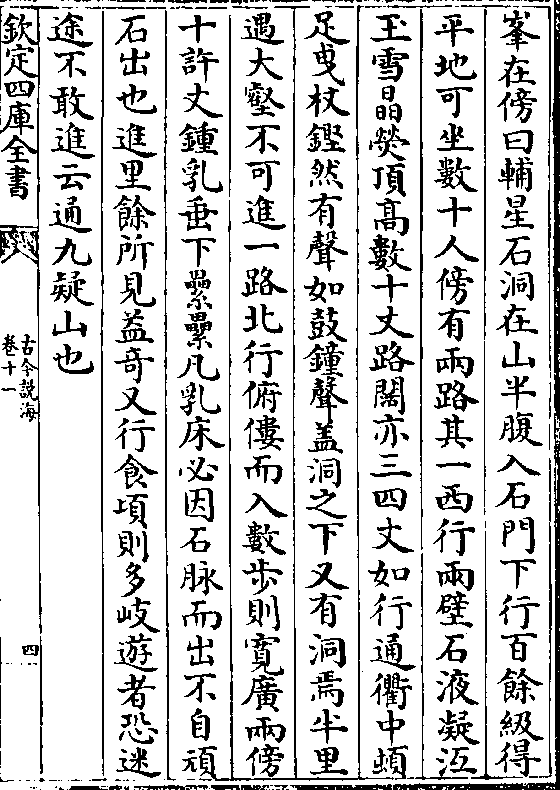 峯在傍曰輔星石洞在山半腹入石門下行百餘級得
平地可坐數十人傍有兩路其一西行兩壁石液凝沍
玉雪晶熒頂高數十丈路闊亦三四丈如行通衢中頓
足曳杖鏗然有聲如鼓鐘聲蓋洞之下又有洞焉半里
遇大壑不可進一路北行俯僂而入數步則寬廣兩傍
十許丈鍾乳垂下纍纍凡乳床必因石脉而出不自頑
石出也進里餘所見益奇又行食頃則多岐遊者恐迷
途不敢進云通九疑山也
欽定四庫全書
古今說海
卷十一
四